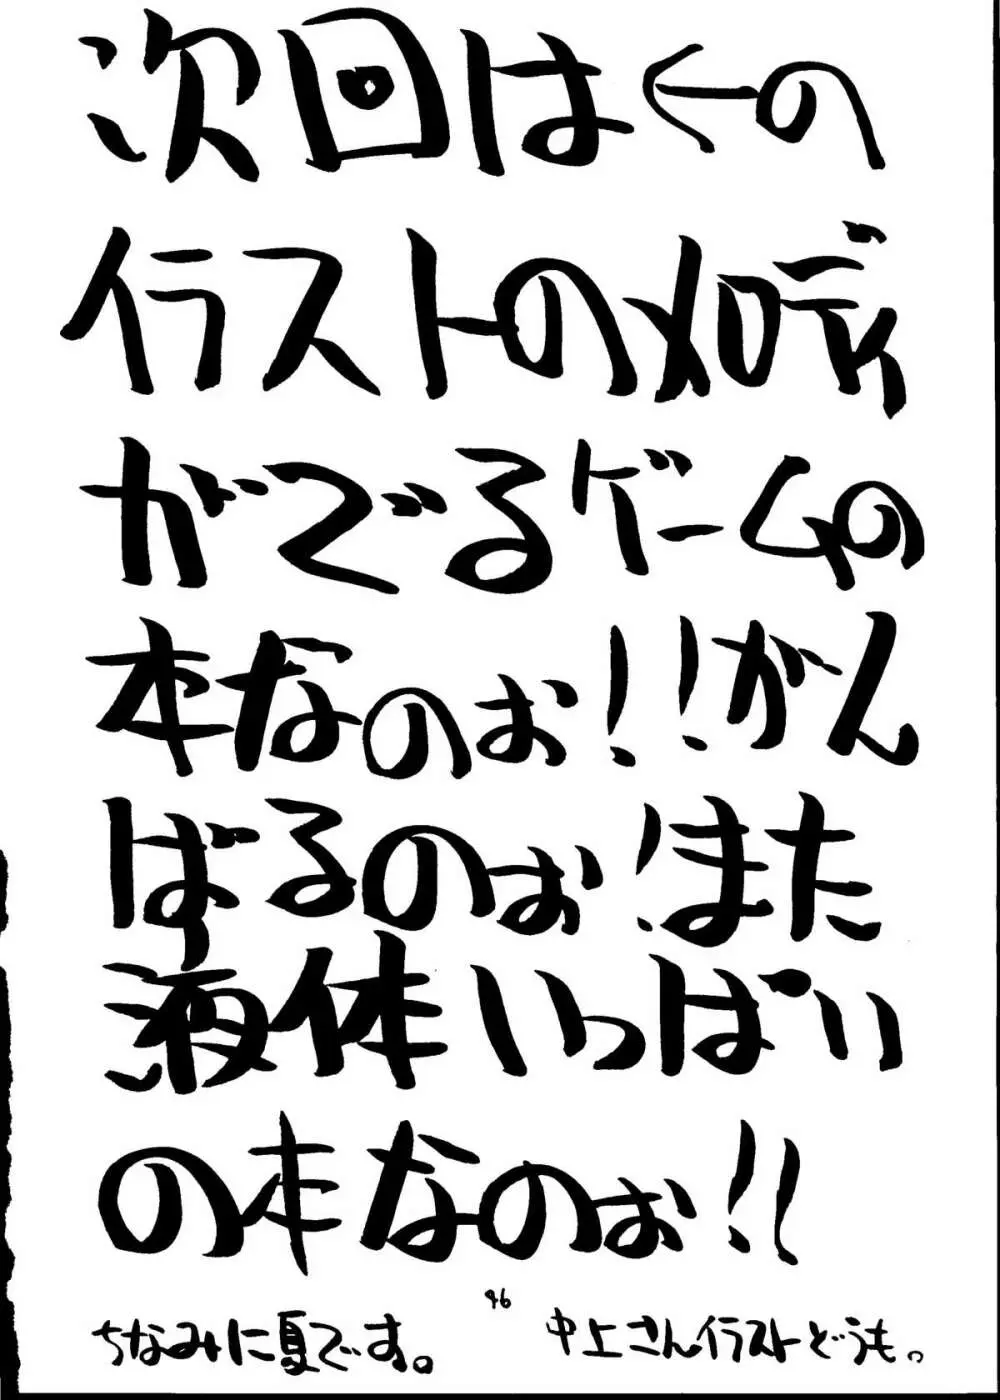 次回は←の
イラストの如き
がでるゲームの
本なのぉ！！がん
ばるのぉ！また
液体いっぱい
の本なのぉ！！
46
ちなみに夏です。
中上さんイラストどうも。